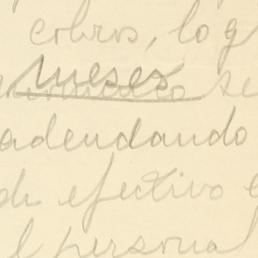 cobros, log
meses
se
adeudando
de efectivo e
el personal